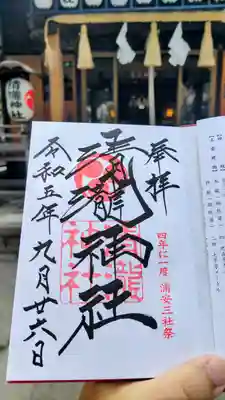 奉拝
四年に一度 浦安三社祭
清瀧神社
清瀧神社
令和五年九月廿六日
清瀧神社